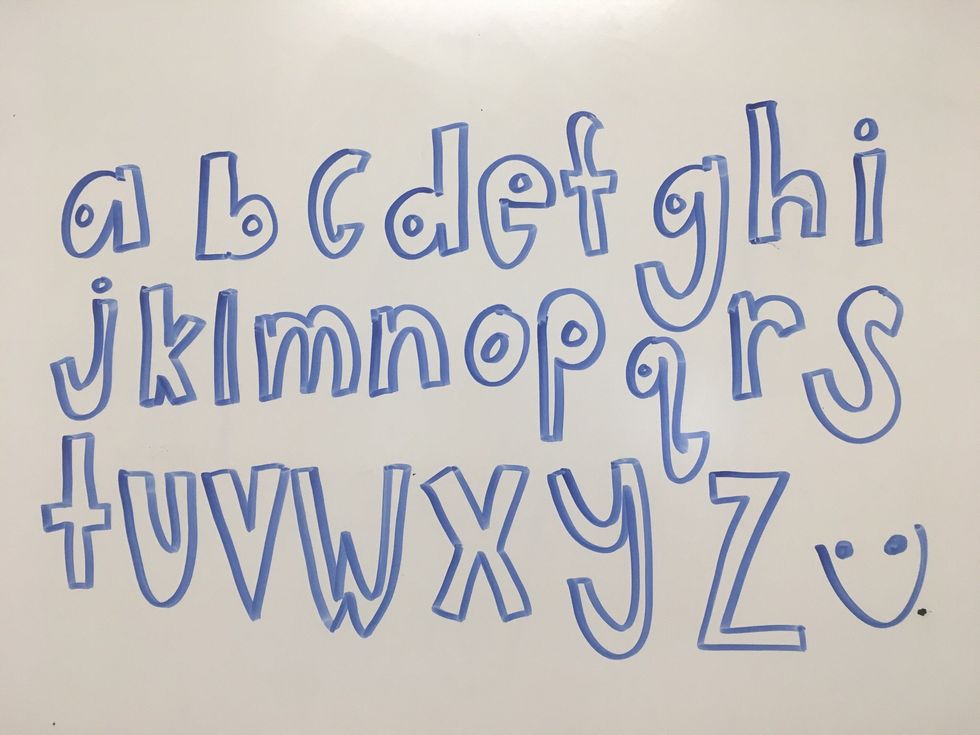 abcdefghi
jklmnopqrs
tuvwxyz